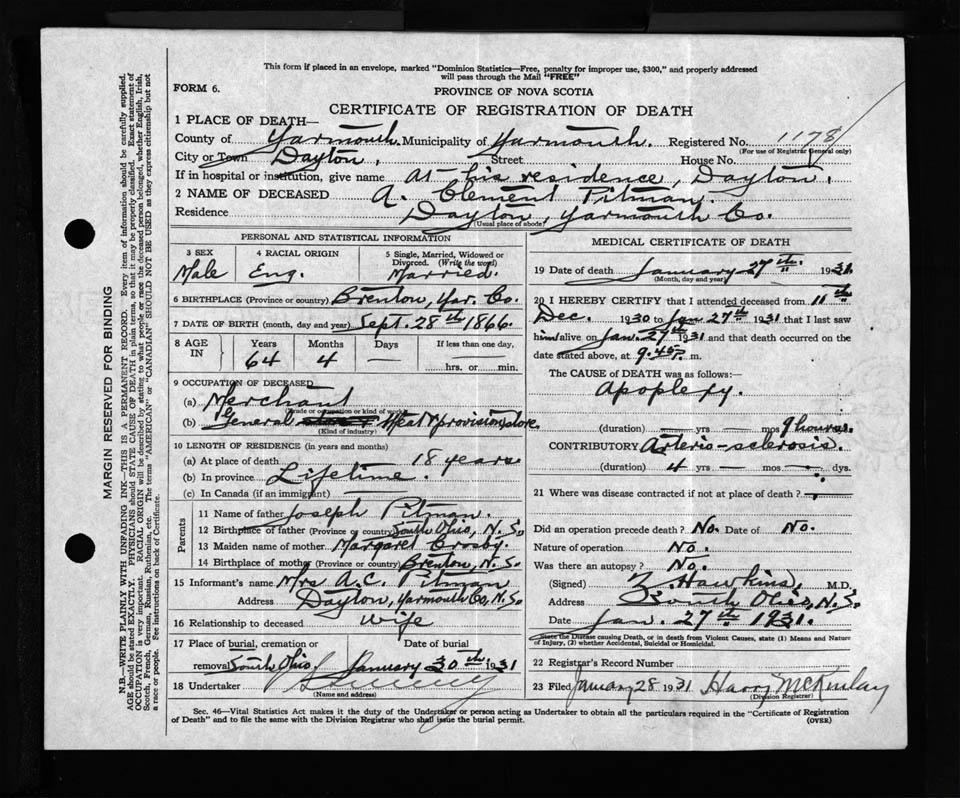 This form if placed in an envelope, marked "Dominion Statistics—Free, penalty for improper use, $300," and properly addressed
will pass through the Mail "FREE"
FORM 6.
PROVINCE OF NOVA SCOTIA
CERTIFICATE OF REGISTRATION OF DEATH
1 PLACE OF DEATH—
County of Yarmouth. Municipality of Yarmouth. Registered No. 1178
(For use of Registrar General only)
City or Town Dayton, Street House No.
If in hospital or institution, give name at his residence, Dayton.
2 NAME OF DECEASED A. Clement Pitman.
Residence Dayton, Yarmouth Co.
(Usual place of abode)
PERSONAL AND STATISTICAL INFORMATION
3 SEX Male
4 RACIAL ORIGIN Eng.
5 Single, Married, Widowed or Divorced. (Write the word) Married.
6 BIRTHPLACE (Province or country) Brenton, Yar. Co.
7 DATE OF BIRTH (month, day and year) Sept. 28th 1866.
8 AGE IN Years 64 Months 4 Days — If less than one day, hrs. or min.
9 OCCUPATION OF DECEASED
(a) Merchant
(Trade or occupation or kind of work)
(b) General Meat & provision store.
(Kind of industry)
10 LENGTH OF RESIDENCE (in years and months)
(a) At place of death 18 years
(b) In province Lifetime.
(c) In Canada (if an immigrant) —
Parents
11 Name of father Joseph Pitman.
12 Birthplace of father (Province or country) South Ohio, N.S.
13 Maiden name of mother Margaret Crosby.
14 Birthplace of mother (Province or country) Brenton, N.S.
15 Informant's name Mrs A.C. Pitman
Address Dayton, Yarmouth Co, N.S.
16 Relationship to deceased wife
17 Place of burial, cremation or removal South Ohio. Date of burial January 30th 1931
18 Undertaker
(Name and address)
MEDICAL CERTIFICATE OF DEATH
19 Date of death January 27th. 1931.
(Month, day and year)
20 I HEREBY CERTIFY that I attended deceased from 11th
Dec. 1930 to Jan 27th 1931 that I last saw
him alive on Jan. 27th 1931 and that death occurred on the
date stated above, at 9.45 P. m.
The CAUSE of DEATH was as follows:—
Apoplexy.
(duration) — yrs — mos 9 hours.
CONTRIBUTORY Arterio-sclerosis.
(duration) 4 yrs — mos — dys.
21 Where was disease contracted if not at place of death? —
Did an operation precede death? No. Date of No.
Nature of operation No.
Was there an autopsy? No.
(Signed) Z. Hawkins, M.D.
Address South Ohio, N.S.
Date Jan. 27th 1931.
State the Disease causing Death, or in death from Violent Causes, state (1) Means and Nature
of Injury, (2) whether Accidental, Suicidal or Homicidal.
22 Registrar's Record Number
23 Filed January 28 1931 Harry McKinlay
(Division Registrar)
Sec. 46—Vital Statistics Act makes it the duty of the Undertaker or person acting as Undertaker to obtain all the particulars required in the "Certificate of Registration
of Death" and to file the same with the Division Registrar who shall issue the burial permit. (OVER)
MARGIN RESERVED FOR BINDING
N.B.—WRITE PLAINLY WITH UNFADING INK—THIS IS A PERMANENT RECORD. Every item of information should be carefully supplied.
AGE should be stated EXACTLY. PHYSICIANS should STATE CAUSE OF DEATH in plain terms, so that it may be properly classified. Exact statement of
OCCUPATION is very important. RACIAL ORIGIN will be described by stating to what people or race the deceased person belonged, whether English, Irish,
Scotch, French, German, Russian, Ruthenian, etc. The terms "AMERICAN" or "CANADIAN" SHOULD NOT BE USED as they express citizenship but not
a race or people. See instructions on back of Certificate.